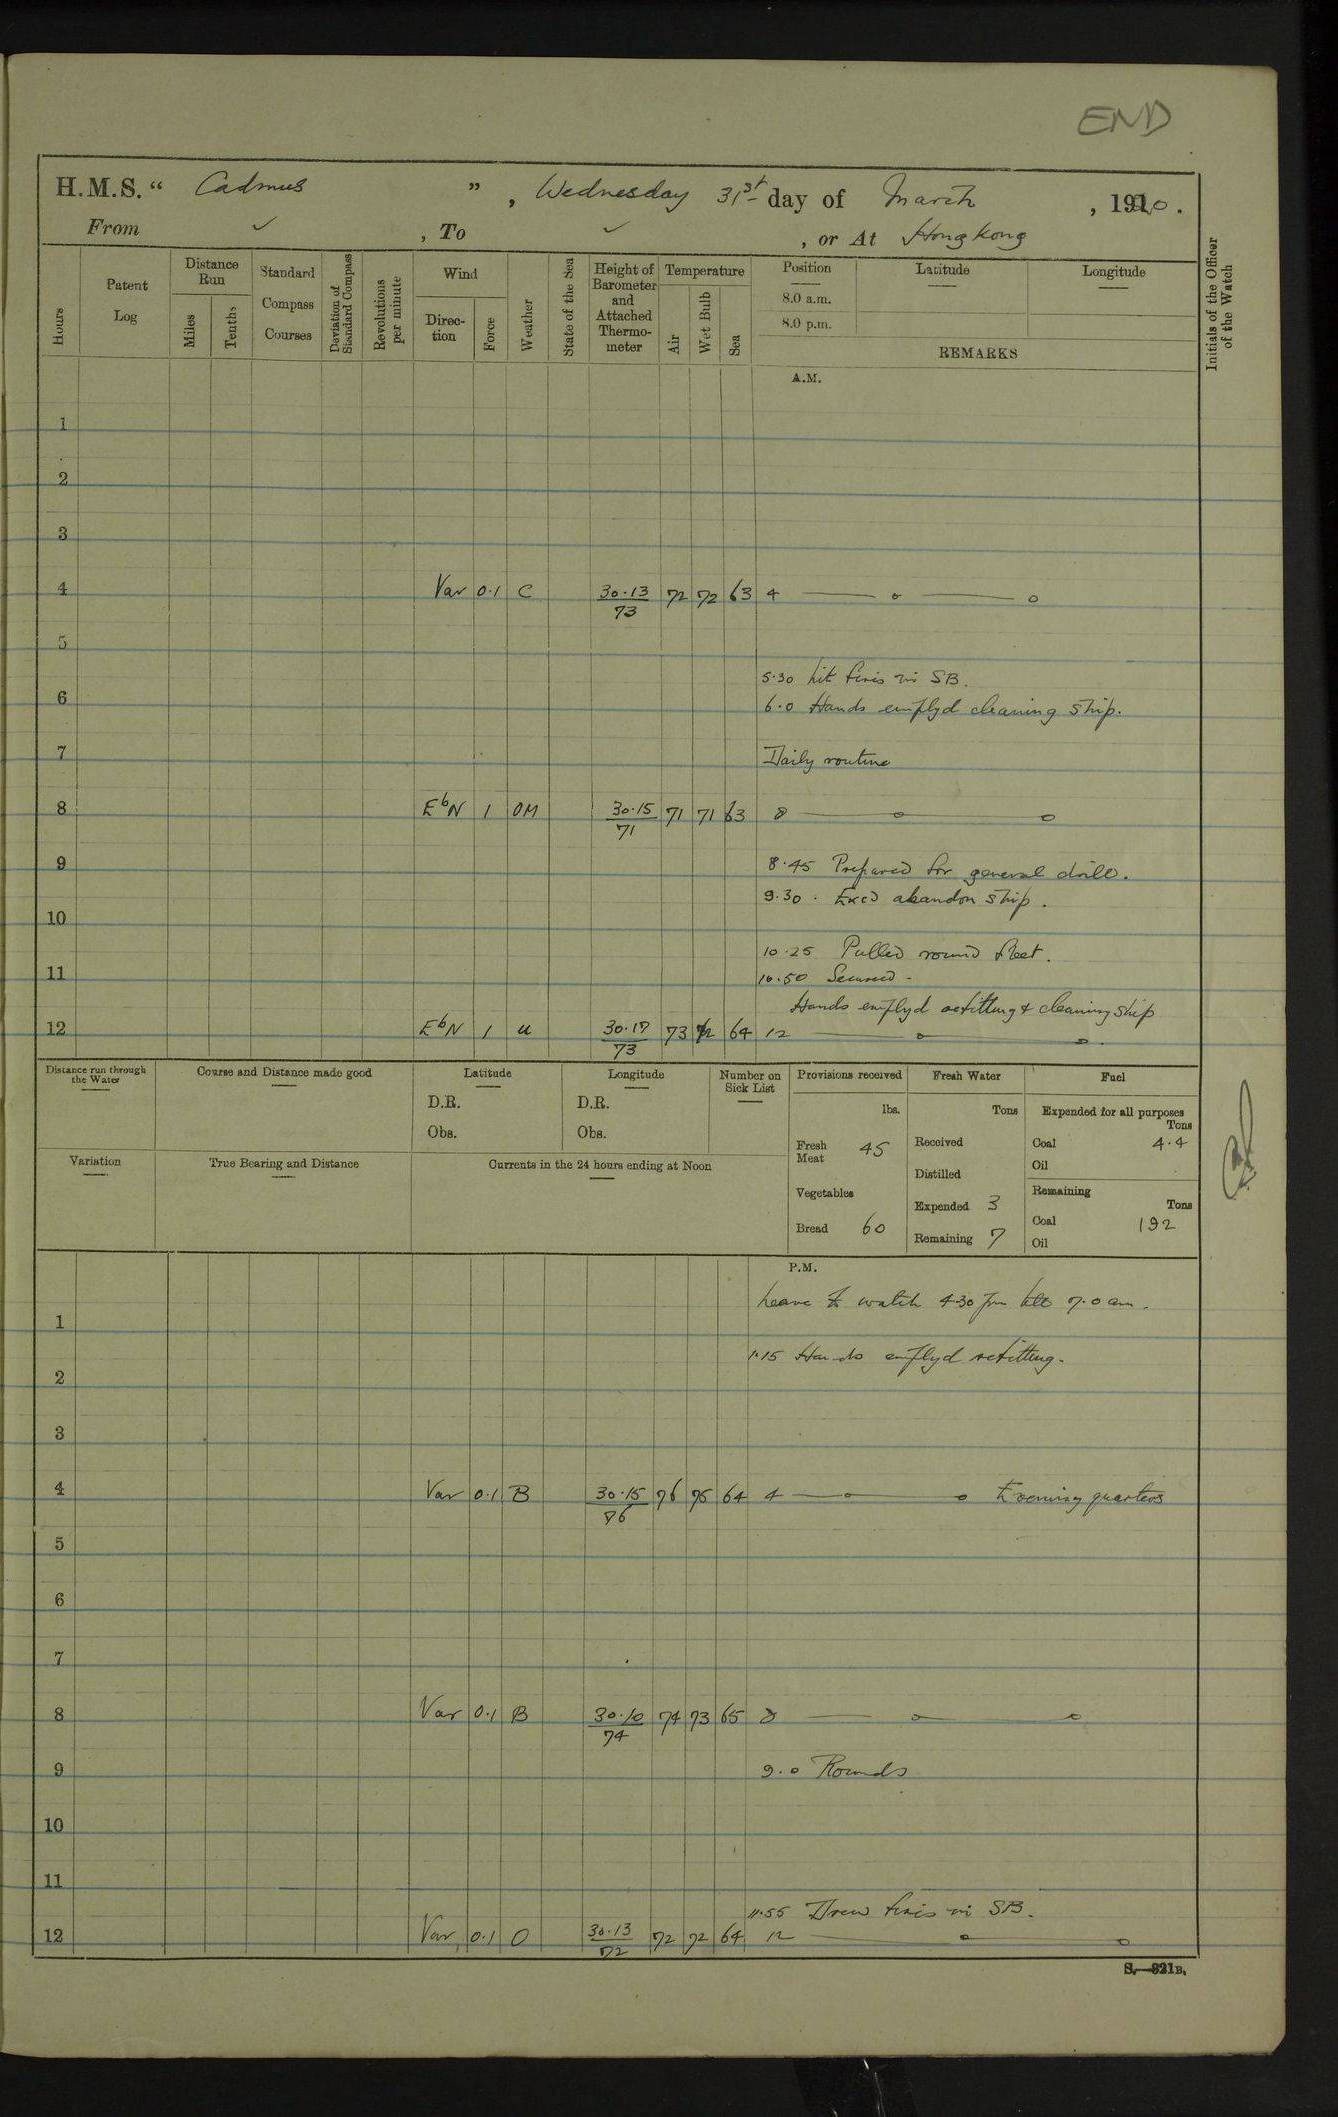 END
H.M.S. “ Cadmus ”, Wednesday 31st day of March, 1920.
From ✓, To ✓, or At Hong Kong
Hours
Patent Log
Distance Run
Miles
Tenths
Standard Compass Courses
Deviation of Standard Compass
Revolutions per minute
Wind
Direc-tion
Force
Weather
State of the Sea
Height of Barometer and Attached Thermo-meter
Temperature
Air
Wet Bulb
Sea
Position
8.0 a.m.
8.0 p.m.
Latitude
Longitude
REMARKS
Initials of the Officer of the Watch
A.M.
1
2
3
4 Var 0.1 C 30.13/73 72 72 63 4
5
5.30 Lit fires in SB.
6
6.0 Hands emplyd cleaning ship.
7
Daily routine
8 EbN 1 OM 30.15/71 71 71 63 8
9
8.45 Prepared for general drill.
9.30. Excd abandon ship.
10
10.25 Pulled round fleet.
11
10.50 Secured.
Hands emplyd refitting & cleaning ship
12 EbN 1 u 30.17/73 73 72 64 12
Distance run through the Water
Course and Distance made good
Latitude
D.R.
Obs.
Longitude
D.R.
Obs.
Number on Sick List
Provisions received
lbs.
Fresh Meat 45
Vegetables
Bread 60
Fresh Water
Tons
Received
Distilled
Expended 3
Remaining 7
Fuel
Expended for all purposes
Tons
Coal 4.4
Oil
Remaining
Tons
Coal 192
Oil
Variation
True Bearing and Distance
Currents in the 24 hours ending at Noon
P.M.
Leave to watch 4.30 pm till 7.0 am.
1
1.15 Hands emplyd refitting.
2
3
4 Var 0.1 B 30.15/76 76 75 64 4 Evening quarters
5
6
7
8 Var 0.1 B 30.10/74 74 73 65 8
9
9.0 Rounds
10
11
11.55 Drew fires in SB.
12 Var 0.1 O 30.13/72 72 72 64 12
S.—321B.